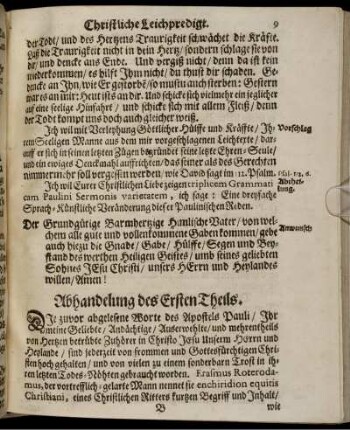 Christliche Leichpredigt. 9
der Todt/ und des Hertzens Traurigkeit schwächet die Kräffte.
Laß die Traurigkeit nicht in dein Hertz/ sondern schlage sie von
dir/ und dencke ans Ende. Und vergiß nicht/ denn da ist kein
wiederkommen/ es hilft Ihm nicht/ du thust dir schaden. Ge-
dencke an Ihn/ wie Er gestorben/ so mustu auch sterben: Gestern
war es an mir: Heut ists an dir. Und schicke sich vielmehr ein jeglicher
auf eine seelige Hinfahrt/ und schicke sich mit allem Fleiß/ denn
der Todt kompt uns doch auch gleicher weiß.
Ich wil mit Verleyhung Göttlicher Hülffe und Kräffte/ Ih-
rem Seeligen Manne aus dem mir vorgeschlagenen Leichtexte/ dar-
auff er sich in seinen letzten Zügen begründet seine letzte Ehren-Seule/
und ein ewiges Denckmahl auffrichten/ das seiner als des Gerechten
nimmermehr soll vergessen werden/ wie David sagt im 112. Psalm.
Vorschlag
Psal. 112. 6.
Ich wil Eurer Christlichen Liebe zeigen triplicem Grammati
cam Paulini Sermonis varietatem, ich sage: Eine dreyfache
Sprach-Künstliche Veränderung dieser Paulinischen Reden.
Abtheilung.
Der Grundgütige Barmhertzige Himlische Vater/ von wel-
chem alle gute und vollenkommene Gaben kommen/ gebe
auch hiezu die Gnade/ Gabe/ Hülffe/ Segen und Bey-
stand des werthen Heiligen Geistes/ umb seines geliebten
Sohnes JEsu Christi/ unsers HErrn und Heylandes
willen/ Amen!
Anwunsch
Abhandelung des Ersten Theils.
DIe zuvor abgelesene Worte des Apostels Pauli/ Ihr
meine Geliebte/ Andächtige/ Auserwehlte/ und mehrentheils
von Hertzen betrübte Zuhörer in Christo Jesu Unserm HErrn und
Heylande/ sind jederzeit von frommen und Gottesfürchtigen Chri-
sten hoch gehalten/ und von vielen zu einem sonderbarn Trost in ih-
ren letzten Todes-Nöhten gebraucht worden. Erasmus Roteroda-
mus, der vortrefflich-gelarte Mann nennet sie enchiridion equitis
Christiani, eines Christlichen Ritters kurtzen Begriff und Inhalt/
B wie